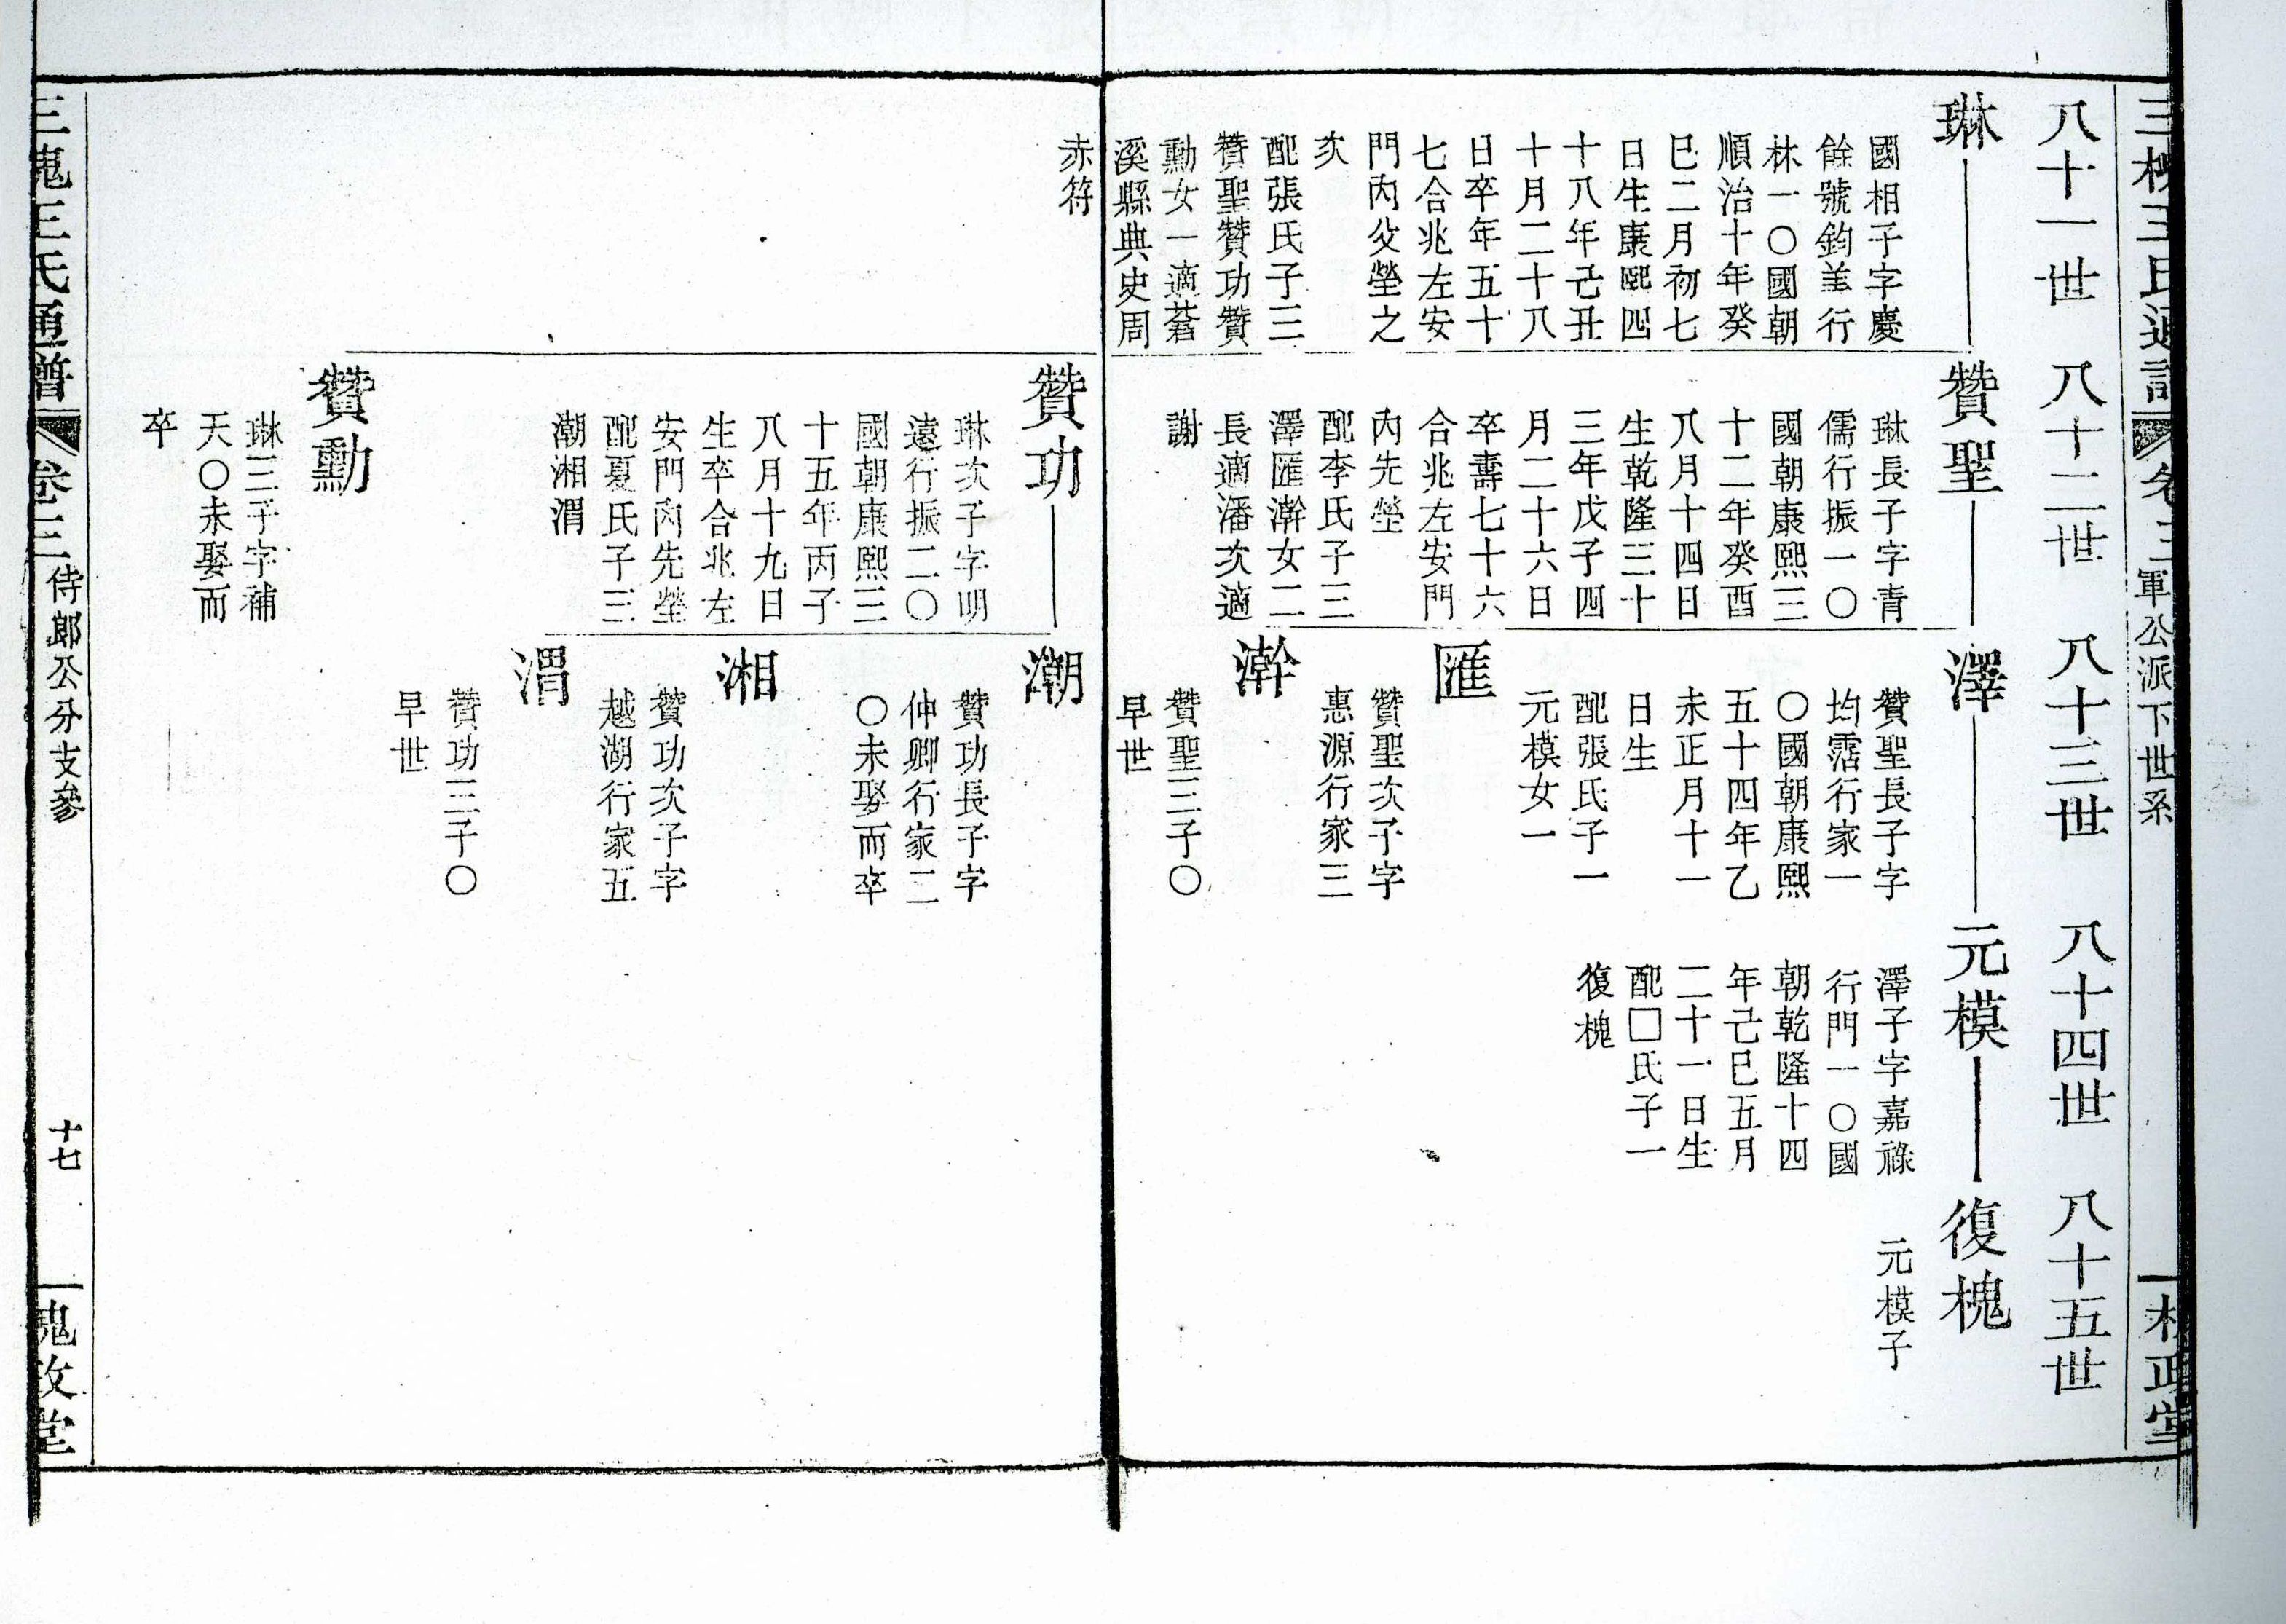 三槐王氏通譜 卷三 軍公派下世系 槐政堂
八十一世 八十二世 八十三世 八十四世 八十五世
琳
國相子字慶
餘號鈞羊行
林一〇國朝
順治十年癸
巳二月初七
日生康熙四
十八年己丑
十月二十八
日卒年五十
七合兆左安
門內父塋之
次
配張氏子三
贊聖贊功贊
勳女一適蒼
溪縣典史周
赤符
贊聖
琳長子字青
儒行振一〇
國朝康熙三
十二年癸酉
八月十四日
生乾隆三十
三年戊子四
月二十六日
卒壽七十六
合兆左安門
內先塋
配李氏子三
澤匯澣女二
長適潘次適
謝
澤
贊聖長子字
均霑行家一
〇國朝康熙
五十四年乙
未正月十一
日生
配張氏子一
元模女一
元模
澤子字嘉祿
行門一〇國
朝乾隆十四
年己巳五月
二十一日生
配□氏子一
復槐
復槐
元模子
匯
贊聖次子字
惠源行家三
澣
贊聖三子〇
早世
贊功
琳次子字明
遠行振二〇
國朝康熙三
十五年丙子
八月十九日
生卒合兆左
安門內先塋
配夏氏子三
潮湘渭
潮
贊功長子字
仲卿行家二
〇未娶而卒
湘
贊功次子字
越湖行家五
渭
贊功三子〇
早世
贊勳
琳三子字補
天〇未娶而
卒
三槐王氏通譜 卷三 侍郎公分支參 十七 槐政堂